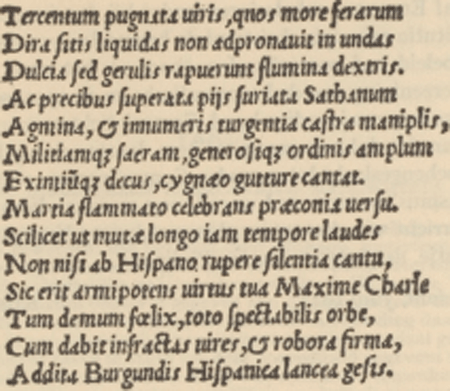 Tercentum pugnata uiris, quos more ferarum
Dira ſitis liquidas non adpronauit in undas
Dulcia ſed gerulis rapuerunt flumina dextris.
Ac precibus ſuperata pijs furiata Sathanum
Agmina, & innumeris turgentia caſtra maniplis,
Militiamqʒ ſacram, generoſiqʒ ordinis amplum
Eximiũqʒ decus, cygnæo gutture cantat.
Martia flammato celebrans præconia uerſu.
Scilicet ut mutæ longo iam tempore laudes
Non niſi ab Hiſpano rupere ſilentia cantu,
Sic erit armipotens uirtus tua Maxime Charle
Tum demum fœlix, toto ſpectabilis orbe,
Cum dabit infractas uires, & robora firma,
Addita Burgundis Hiſpanica lancea geſis.